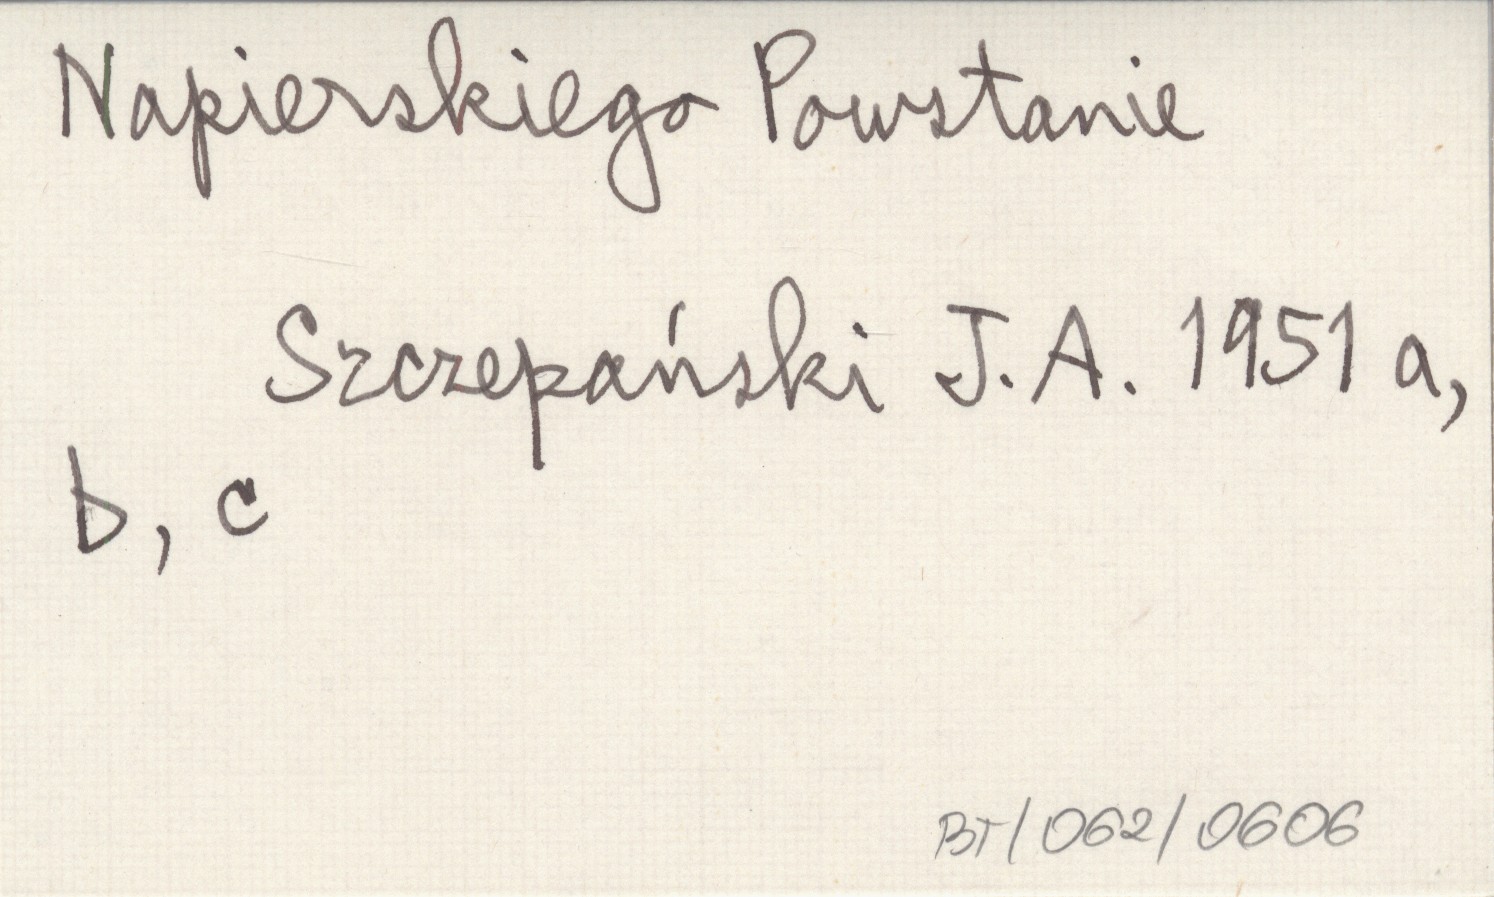 Napierskiego Powstanie
Szczepański J.A. 1951 a,
b, c
BT/062/0606